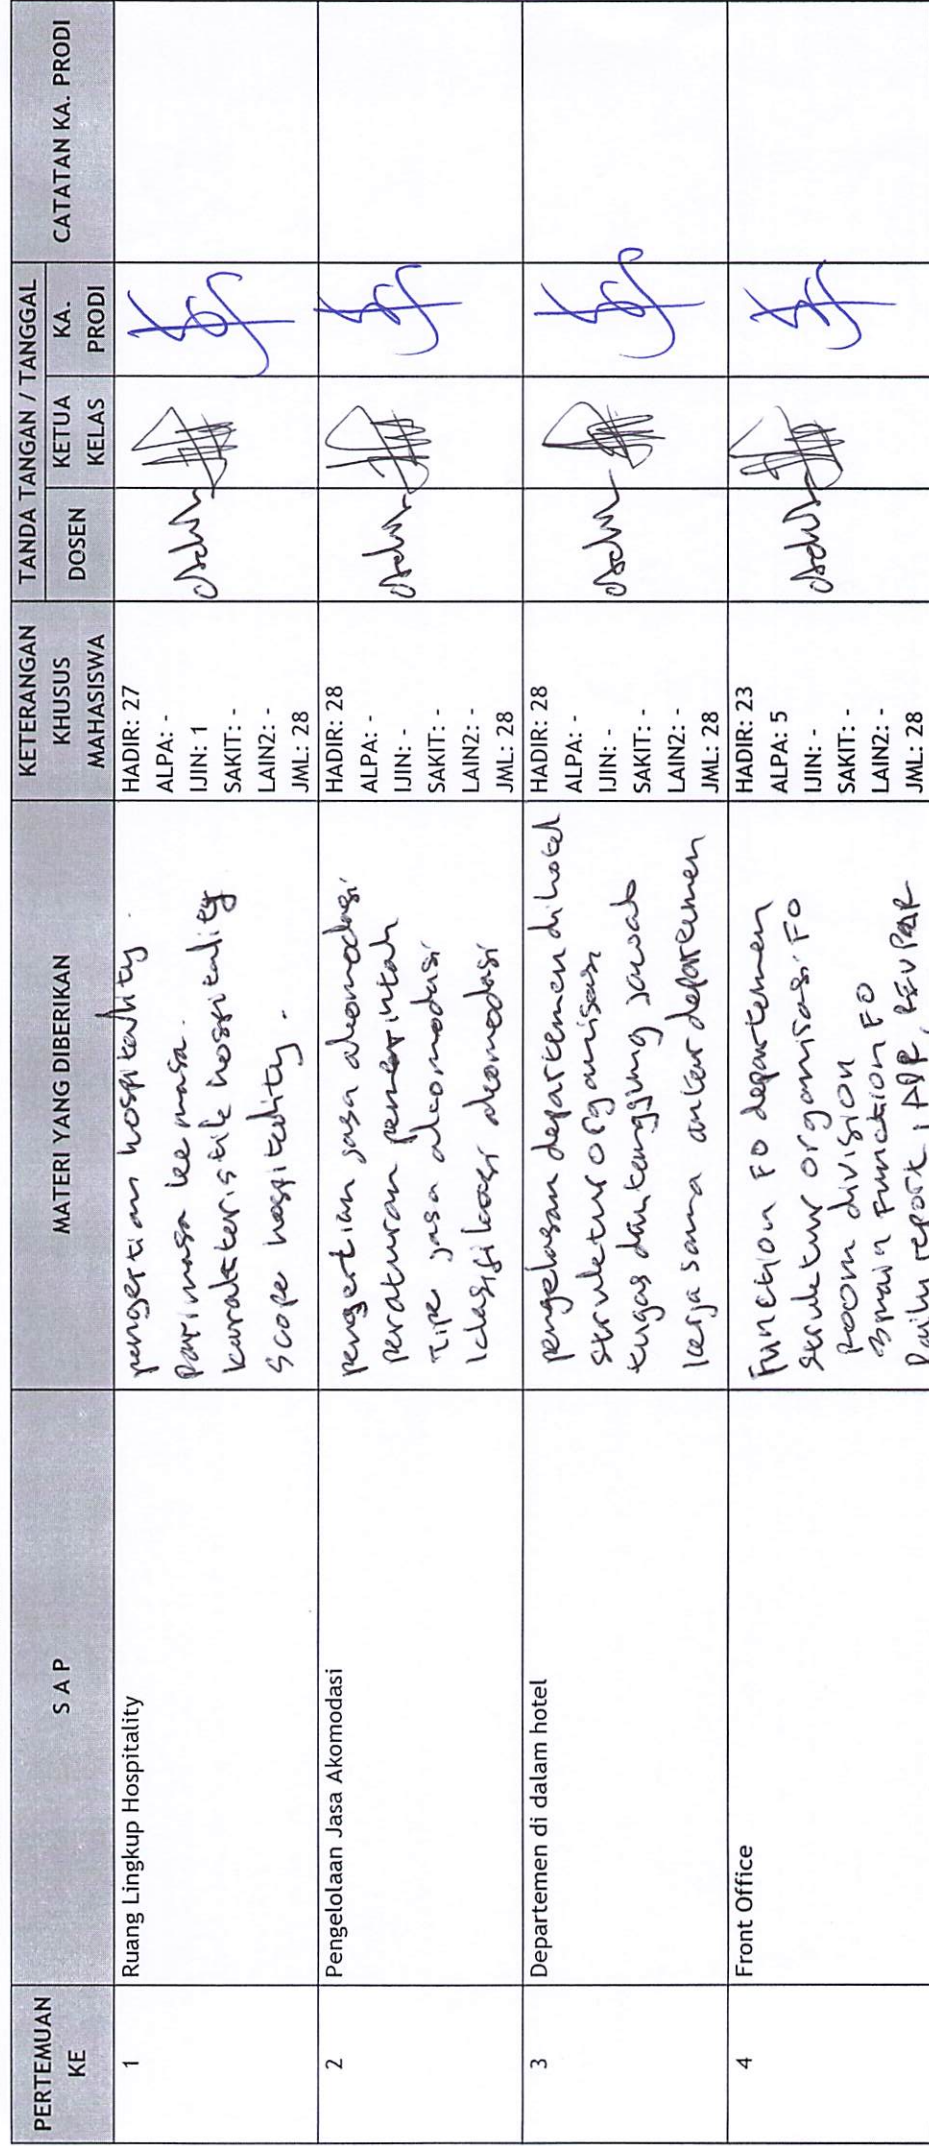 PERTEMUAN
KE
S A P
MATERI YANG DIBERIKAN
KETERANGAN
KHUSUS
MAHASISWA
TANDA TANGAN / TANGGAL
DOSEN
KETUA
KELAS
KA.
PRODI
CATATAN KA. PRODI
1
Ruang Lingkup Hospitality
pengertian hospitality.
Dari masa ke masa.
karakteristik hospitality
Scope hospitality.
HADIR: 27
ALPA: -
IJIN: 1
SAKIT: -
LAIN2: -
JML: 28
2
Pengelolaan Jasa Akomodasi
pengertian jasa akomodasi
peraturan pemerintah
Tipe jasa akomodasi
klasifikasi akomodasi
HADIR: 28
ALPA: -
IJIN: -
SAKIT: -
LAIN2: -
JML: 28
3
Departemen di dalam hotel
pengelasan departemen di hotel
struktur organisasi
tugas dan tanggung jawab
kerja sama antar departemen
HADIR: 28
ALPA: -
IJIN: -
SAKIT: -
LAIN2: -
JML: 28
4
Front Office
Function FO departemen
struktur organisasi FO
Room division
3 main Function FO
Daily report, ADR, REV PAR
HADIR: 23
ALPA: 5
IJIN: -
SAKIT: -
LAIN2: -
JML: 28